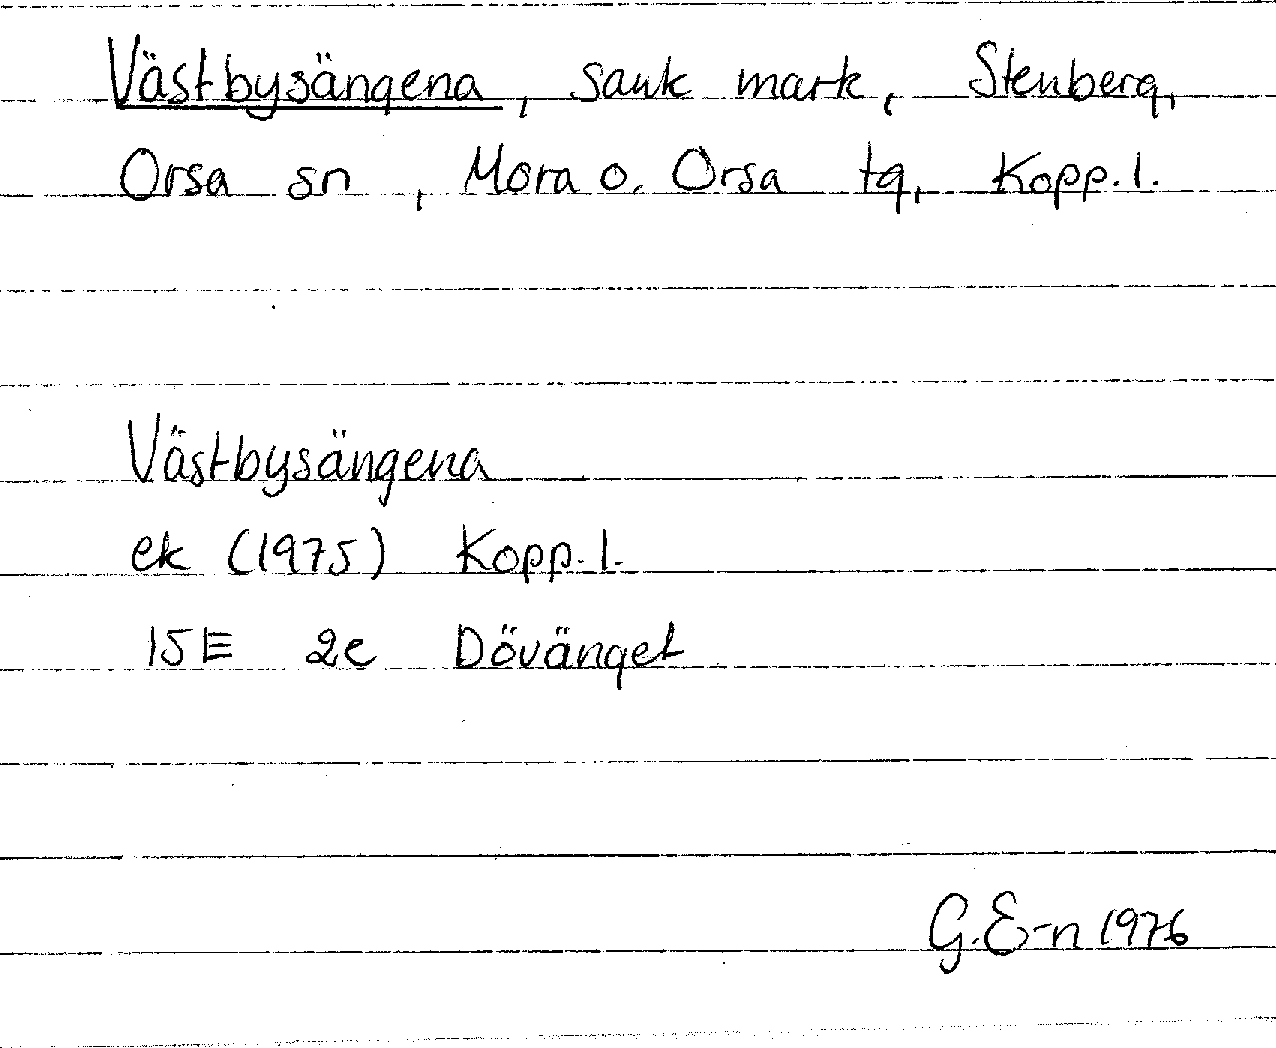 Västbysängena, sank mark, Stenberg,
Orsa sn, Mora o. Orsa tg, Kopp. l.
Västbysängena
ek (1975) Kopp. l.
15E 2e Dövänget
G. E-n 1976